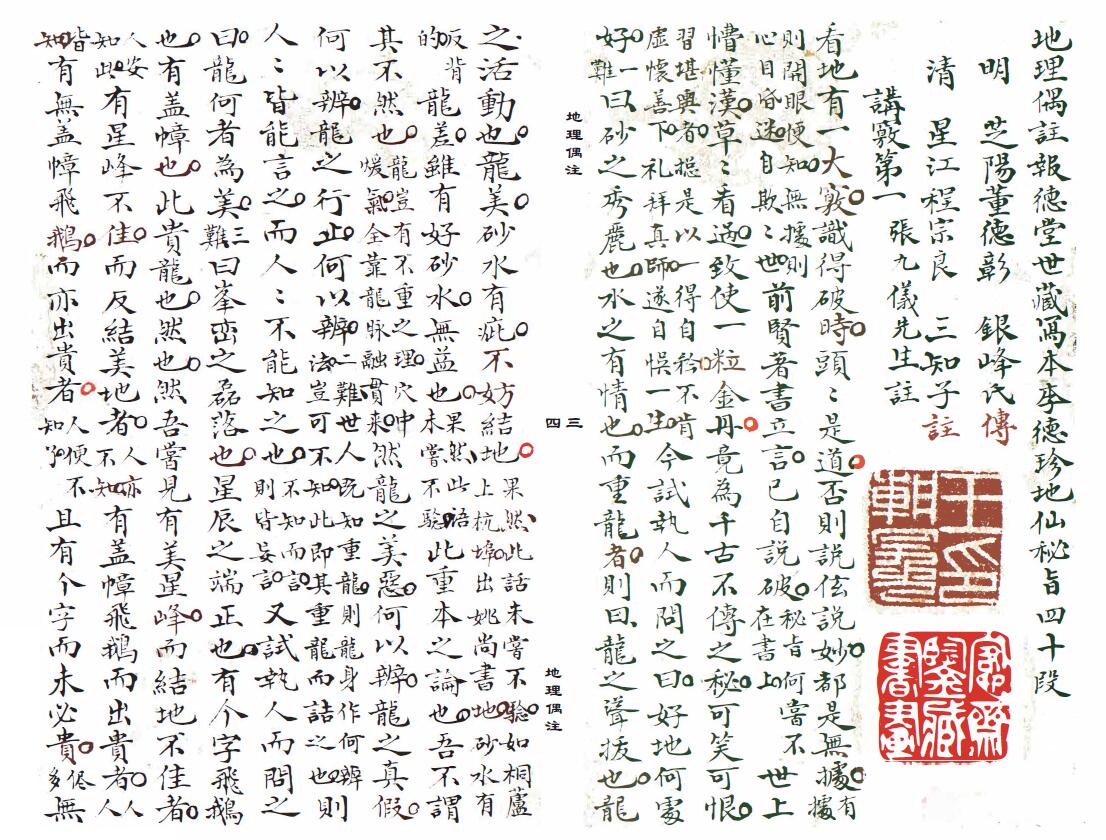 地理偶註報德堂世藏寫本李德珍地仙秘旨四十段
明 芝陽董德彰 銀峰氏傳
清 星江程宗良 三知子註
講竅第一 張九儀先生註
看地有一大竅識得破時頭〻是道否則說伭說妙都是無據有據
則開眼便知無據則心目昏迷自欺〻世前賢著書立言已自說破秘旨何嘗不在書上世上
懵懂漢草〻看過致使一粒金丹竟為千古不傳之秘可笑可恨
習堪輿者揔是以一得自矜不肯虛懷善下礼拜真師遂自悞一生今試執人而問之曰好地何處
好一難曰砂之秀麗也水之有情也而重龍者則曰龍之聳拔也龍
地理偶注
三四
地理偶注
之活動也龍美砂水有疵不妨結地果然此話未嘗不驗如桐蘆上杭埠出姚尚書地砂水有
反背的龍差雖有好砂水無益也果然此語未嘗不驗此重本之論也吾不謂
其不然也龍豈有不重之理穴中煖氣全靠龍脉融貫來然龍之美惡何以辨龍之真假
何以辨龍之行止何以辨二難世人既知重龍則龍身作何辨法豈可不知此即其重龍而詰之也則
人〻皆能言之而人〻不能知之也不知而言則皆妄言又試執人而問之
曰龍何者為美三難曰峯巒之磊落也星辰之端正也有个字飛鵝
也有蓋幛也此貴龍也然也然吾嘗見有美星峰而結地不佳者
人安知此有星峰不佳而反結美地者人亦不知有蓋幛飛鵝而出貴者人人
皆知有無蓋幛飛鵝而亦出貴者人便不知了且有个字而未必貴俗多無